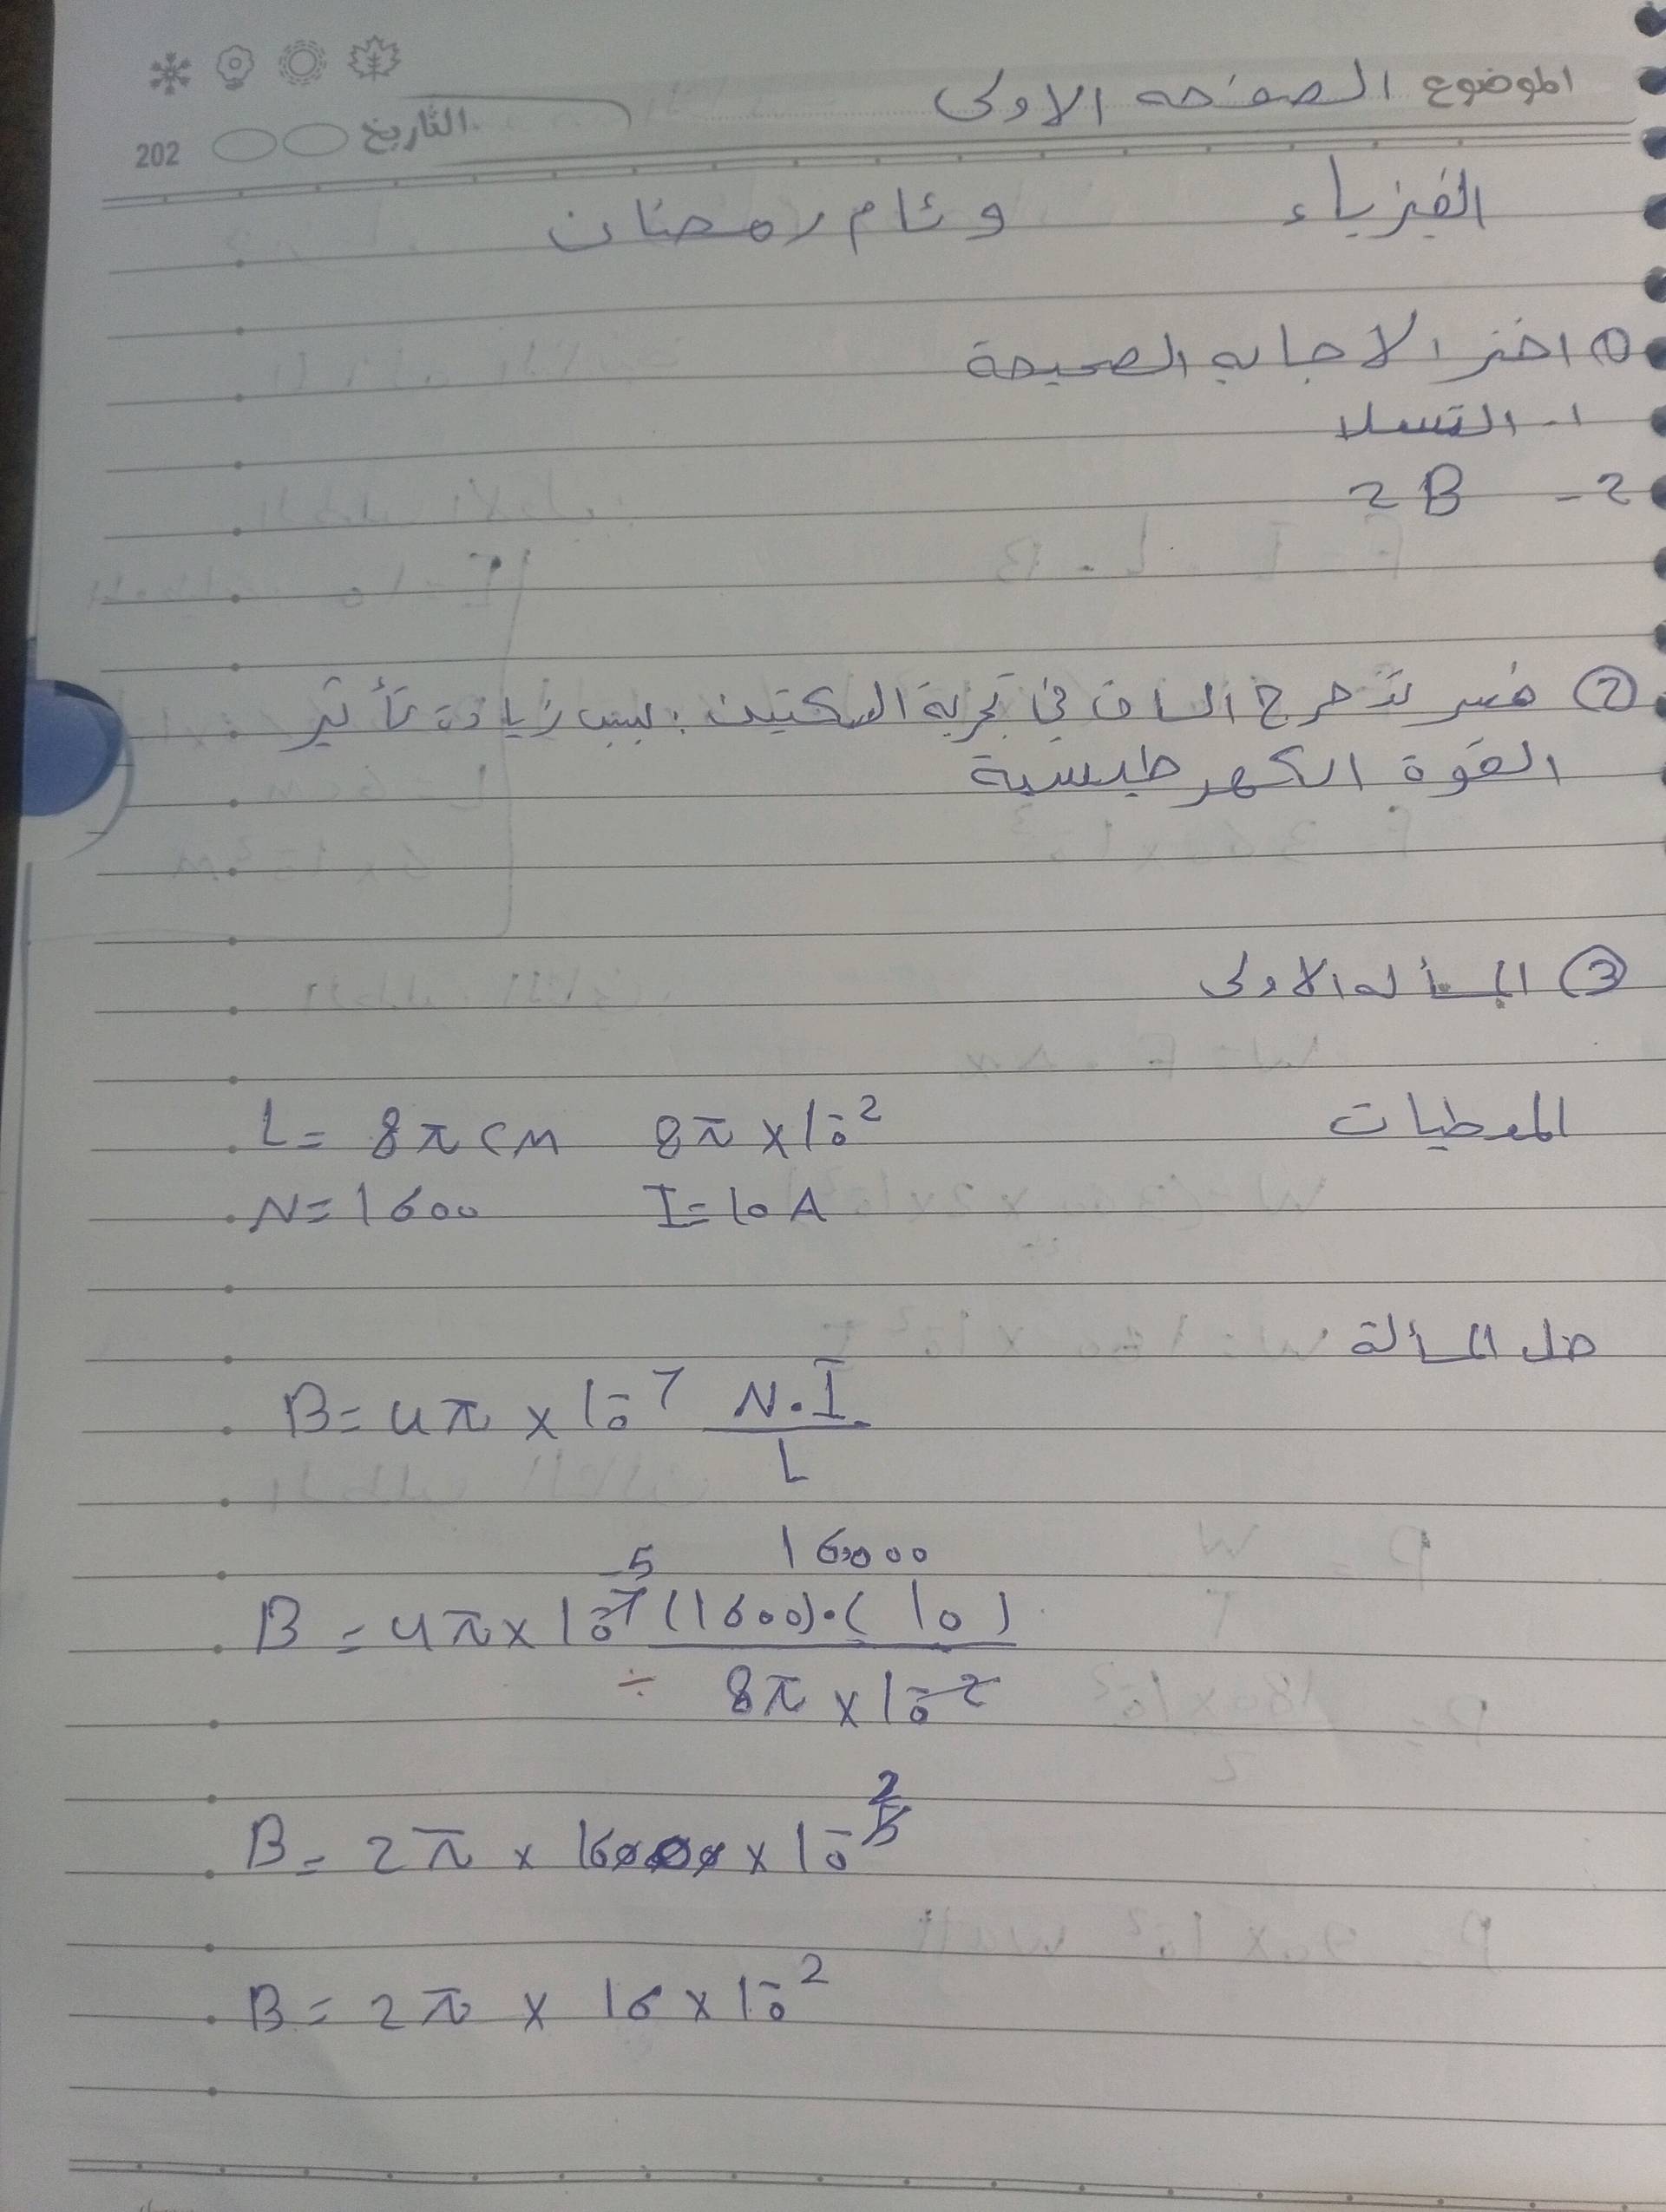 الموضوع الصفحه الاولى
التاريخ 202
الفيزياء وئام رمضان
① اختر الاجابه الصحيحة
1- التسلا
2- 2B
② فسر تدحرج الساق في تجربة السكتين: بسبب زيادة تأثير
القوة الكهرطيسية
③ المسأله الاولى
المعطيات L = 8π cm 8π × 10⁻²
N = 1600 I = 10 A
حل المسألة
B = 4π × 10⁻⁷ N.I / L
-5 16000
B = 4π × 10⁻⁷ (1600).(10)
÷ 8π × 10⁻²
2
B = 2π × 16000 × 10⁻⁵
B = 2π × 16 × 10⁻²